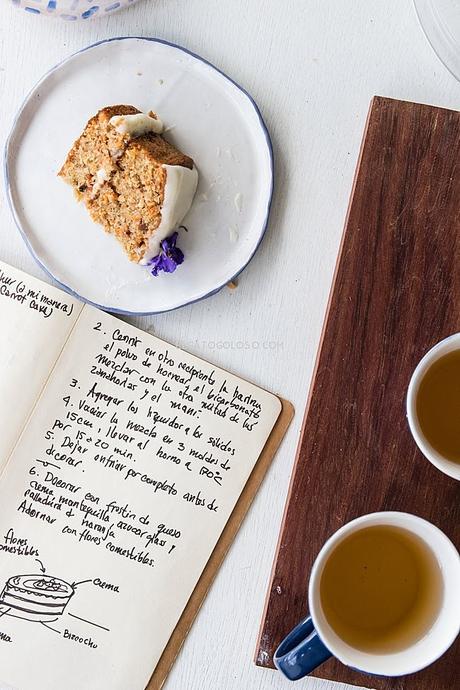 (a mi manera)
Carrot Cake)
2. Cernir en otro recipiente la harina
el polvo de hornear y el bicarbonato
mezclar con la otra mitad de las
zanahorias y el maní.
3. Agregar los líquidos a los sólidos
4. Vaciar la mezcla en 3 moldes de
15cm; llevar al horno a 170°C
por 15 a 20 min.
5. Dejar enfriar por completo antes de
decorar.
6. Decorar con frostin de queso
crema mantequilla azucar glass y
ralladura de naranja
Adornar con flores comestibles.
flores
comestibles
crema
Bizcocho
GATOGOLOSO.COM